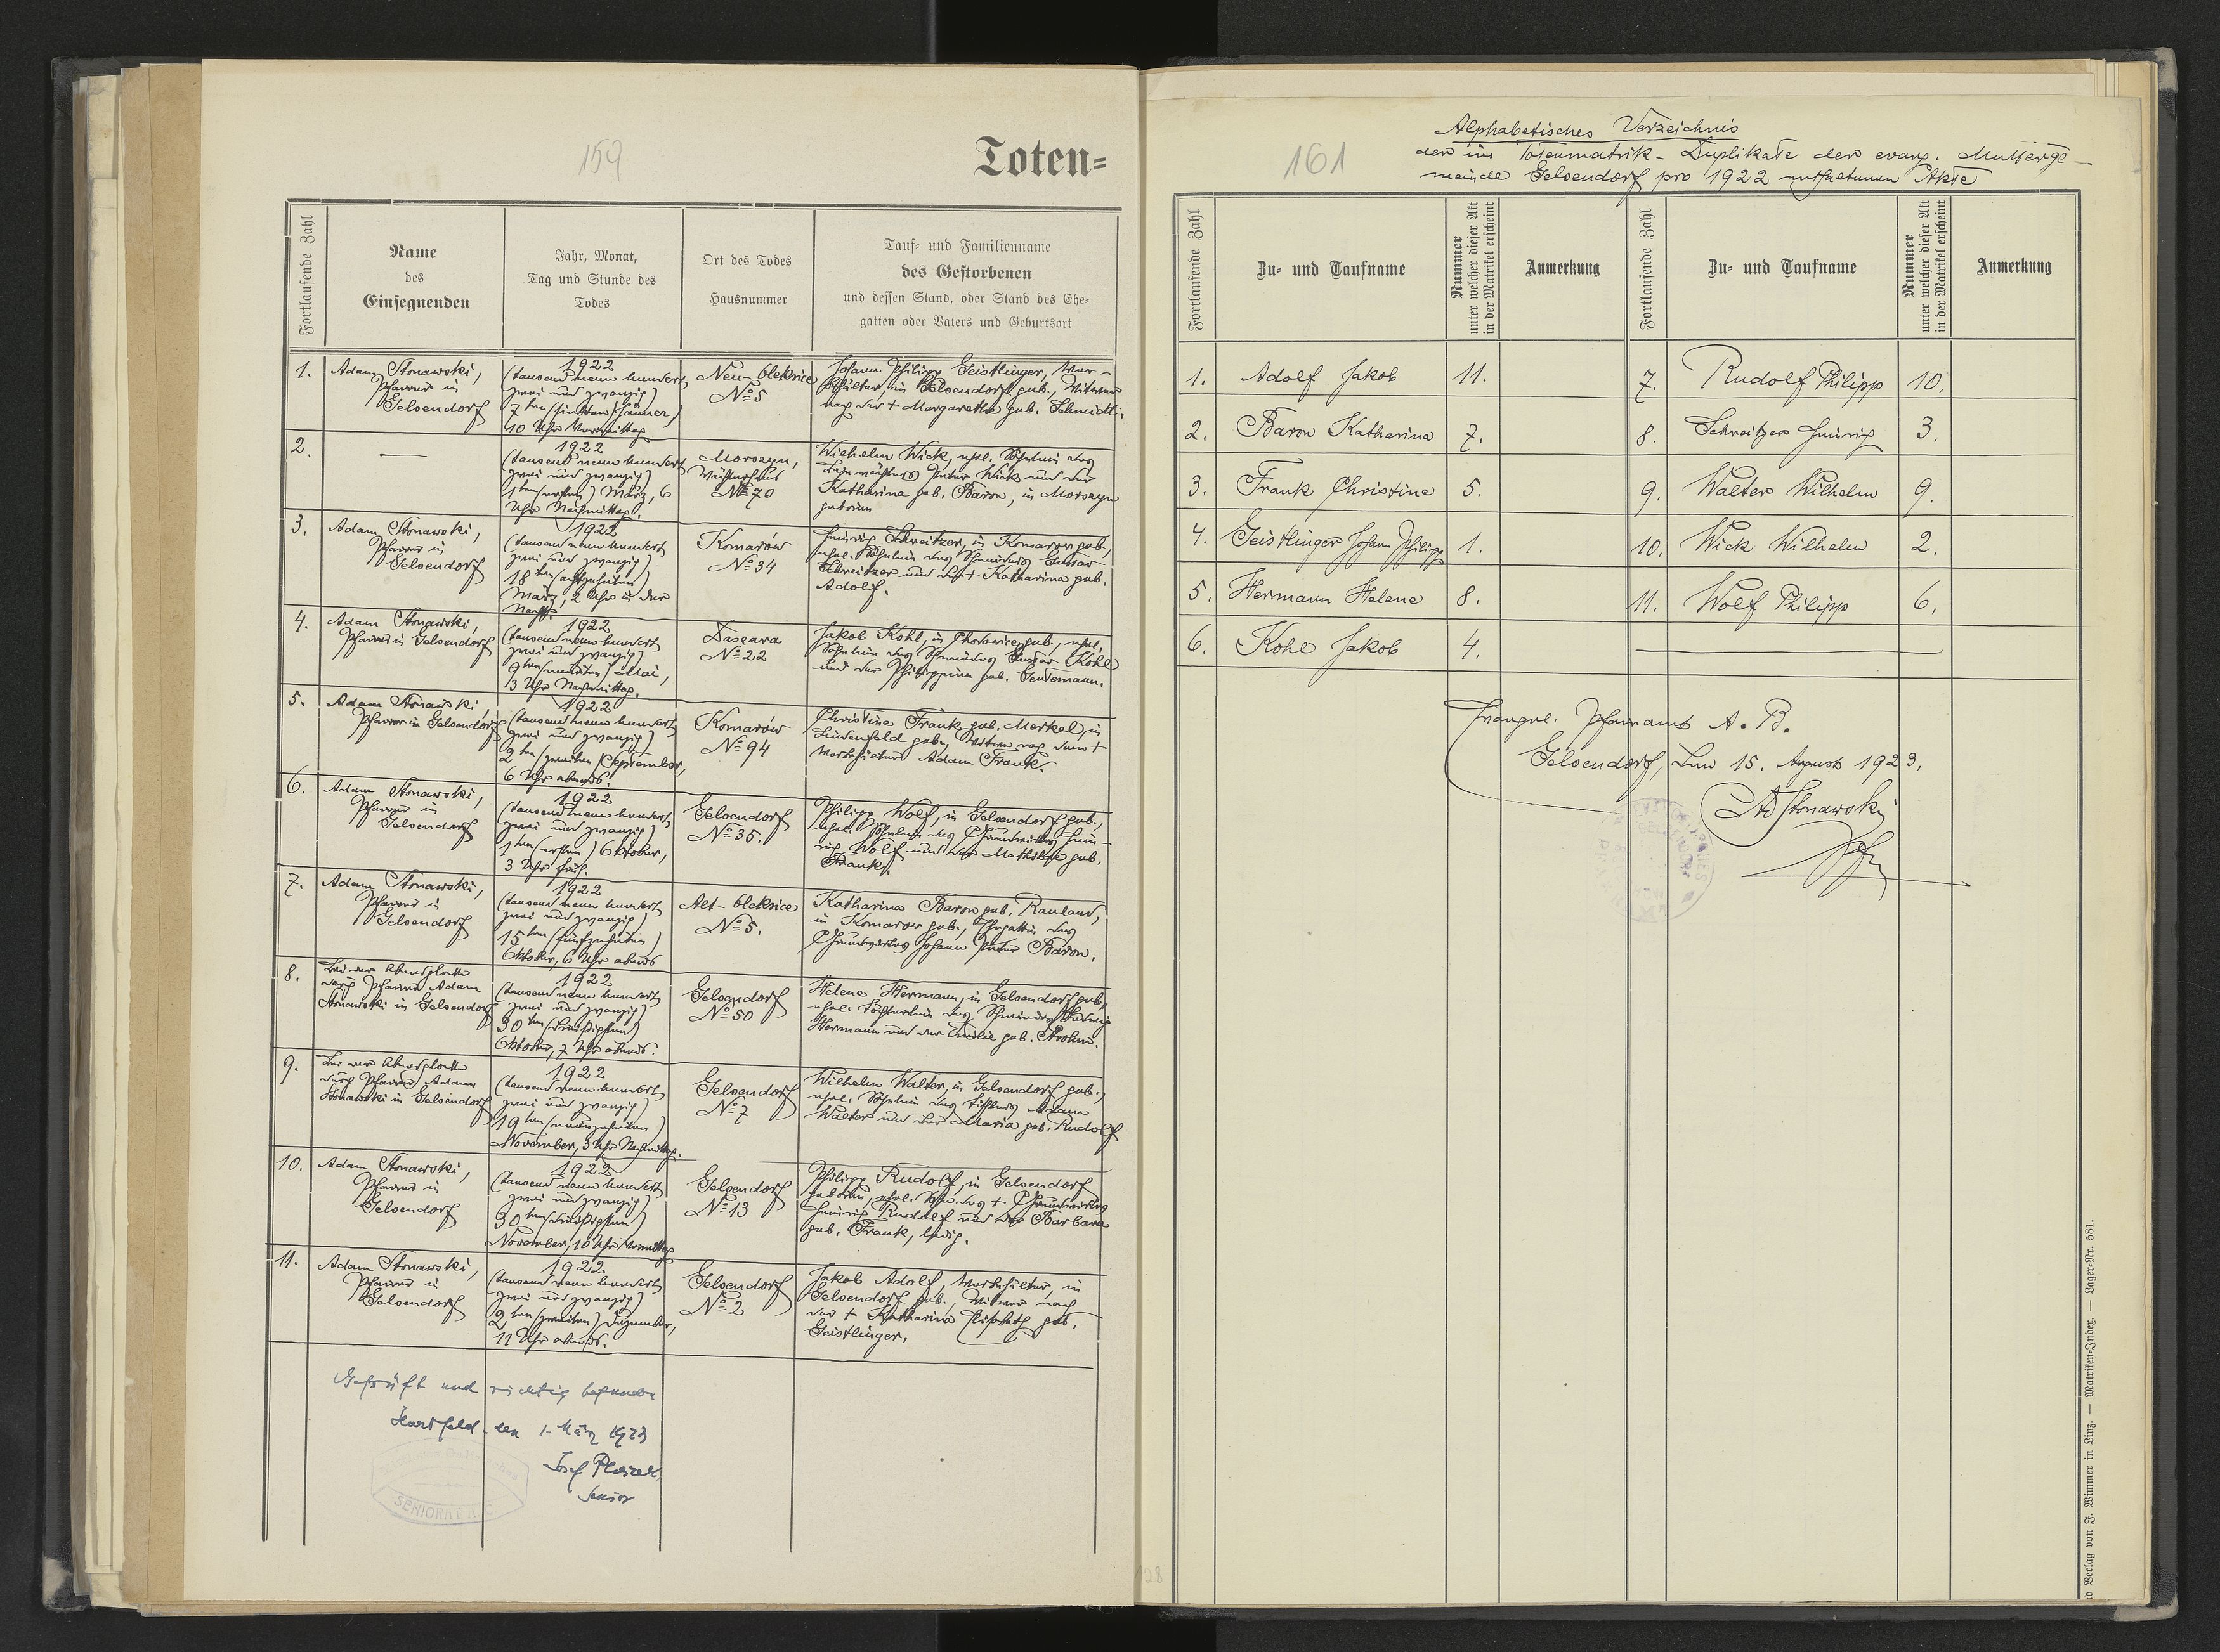 159
Toten=
Fortlaufende Zahl
Name
des
Einsegnenden
Jahr, Monat,
Tag und Stunde des
Todes
Ort des Todes
Hausnummer
Tauf= und Familienname
des Gestorbenen
und dessen Stand, oder Stand des Ehe=
gatten oder Vaters und Geburtsort
1.
Adam Stonawski,
Pfarrer in
Gelsendorf
1922
(tausend neun hundert
zwei und zwanzig)
7ten (siebten) Jänner,
10 Uhr Vormittag
Neu-Oleksice
No 5
Johann Philipp Geistlinger, Aus-
gehälter, in Gelsendorf geb., Witwer
nach der + Margarethe geb. Schmidt.
2.
—
1922
(tausend neun hundert
zwei und zwanzig)
1ten (ersten) März, 6
Uhr Nachmittag.
Morszyn,
Wächterhaus
No 70
Wilhelm Wick, ehel. Söhnlein des
Bahnwächters Peter Wick und der
Katharina geb. Baron, in Morszyn
geboren
3.
Adam Stonawski,
Pfarrer in
Gelsendorf
1922
(tausend neun hundert
zwei und zwanzig)
18ten (achtzehnten)
März, 2 Uhr in der
Nacht.
Komarów
No 34
Heinrich Schweitzer, in Komarow geb.,
ehel. Söhnlein des Schmiedes Gustav
Schweitzer und der + Katharina geb.
Adolf.
4.
Adam Stonawski,
Pfarrer in Gelsendorf
1922
(tausend neun hundert
zwei und zwanzig)
9ten (neunten) Mai,
3 Uhr Nachmittag.
Daszawa
No 22
Jakob Kohl, in geb., ehel.
Söhnlein des Schmiedes Gustav Kohl
und der Philippine geb.
5.
Adam Stonawski,
Pfarrer in Gelsendorf
1922
(tausend neun hundert
zwei und zwanzig)
2ten (zweiten) September,
6 Uhr abends.
Komarów
No 94
Christine Frank geb. Merkel, in
geb., Witwe nach dem +
Adam Frank.
6.
Adam Stonawski,
Pfarrer in
Gelsendorf
1922
(tausend neun hundert
zwei und zwanzig)
1ten (ersten) Oktober,
3 Uhr früh.
Gelsendorf
No 35.
Philipp Wolf, in Gelsendorf geb.,
ehel. Söhnlein des Grundwirtes Hein-
rich Wolf und der Mathilde geb.
Frank.
7.
Adam Stonawski,
Pfarrer in
Gelsendorf
1922
(tausend neun hundert
zwei und zwanzig)
15ten (fünfzehnten)
Oktober, 6 Uhr abends
Alt-Oleksice
No 5.
Katharina Baron geb. Rauland,
in Komarow geb., Ehegattin des
Grundwirtes Johann Peter Baron.
8.
Bei der Abendglocke
durch Pfarrer Adam
Stonawski in Gelsendorf
1922
(tausend neun hundert
zwei und zwanzig)
30ten (dreißigsten)
Oktober, 7 Uhr abends.
Gelsendorf
No 50
Helene Hermann, in Gelsendorf geb.,
ehel. Töchterlein des Schmiedes Ludwig
Hermann und der Emilie geb. Strohm.
9.
Bei der Abendglocke
durch Pfarrer Adam
Stonawski in Gelsendorf
1922
(tausend neun hundert
zwei und zwanzig)
19ten (neunzehnten)
November, 3 Uhr Nachmittag.
Gelsendorf
No 7
Wilhelm Walter, in Gelsendorf geb.,
ehel. Söhnlein des Tischlers Adam
Walter und der Maria geb. Rudolf
10.
Adam Stonawski,
Pfarrer in
Gelsendorf
1922
(tausend neun hundert
zwei und zwanzig)
30ten (dreißigsten)
November, 10 Uhr Vormittag
Gelsendorf
No 13
Philipp Rudolf, in Gelsendorf
geboren, ehel. Sohn des + Grundwirtes
Heinrich Rudolf und der Barbara
geb. Frank, ledig.
11.
Adam Stonawski,
Pfarrer in
Gelsendorf
1922
(tausend neun hundert
zwei und zwanzig)
2ten (zweiten) Dezember,
11 Uhr abends.
Gelsendorf
No 2
Jakob Adolf, in
Gelsendorf geb., Witwer nach
der + Katharina Elisabeth geb.
Geistlinger.
Geprüft und richtig befunden
Hartfeld den 1. März 1923
Josef
Senior
SENIORAT A.C.
161
Alphabetisches Verzeichnis
der im Totenmatrik-Duplikate der evang. Mutterge-
meinde Gelsendorf pro 1922 enthaltenen Akte
Fortlaufende Zahl
Zu= und Taufname
Nummer
unter welcher dieser Akt
in der Matrikel erscheint
Anmerkung
Fortlaufende Zahl
Zu= und Taufname
Nummer
unter welcher dieser Akt
in der Matrikel erscheint
Anmerkung
1. Adolf Jakob 11.
2. Baron Katharina 7.
3. Frank Christine 5.
4. Geistlinger Johann Philipp 1.
5. Hermann Helene 8.
6. Kohl Jakob 4.
7. Rudolf Philipp 10.
8. Schweitzer Heinrich 3.
9. Walter Wilhelm 9.
10. Wick Wilhelm 2.
11. Wolf Philipp 6.
Evangel. Pfarramt A. B.
Gelsendorf, den 15. August 1923.
AdStonawski
Pfr
128
Verlag von F. Wimmer in Linz. — Matriken=Index. — Lager=Nr. 581.